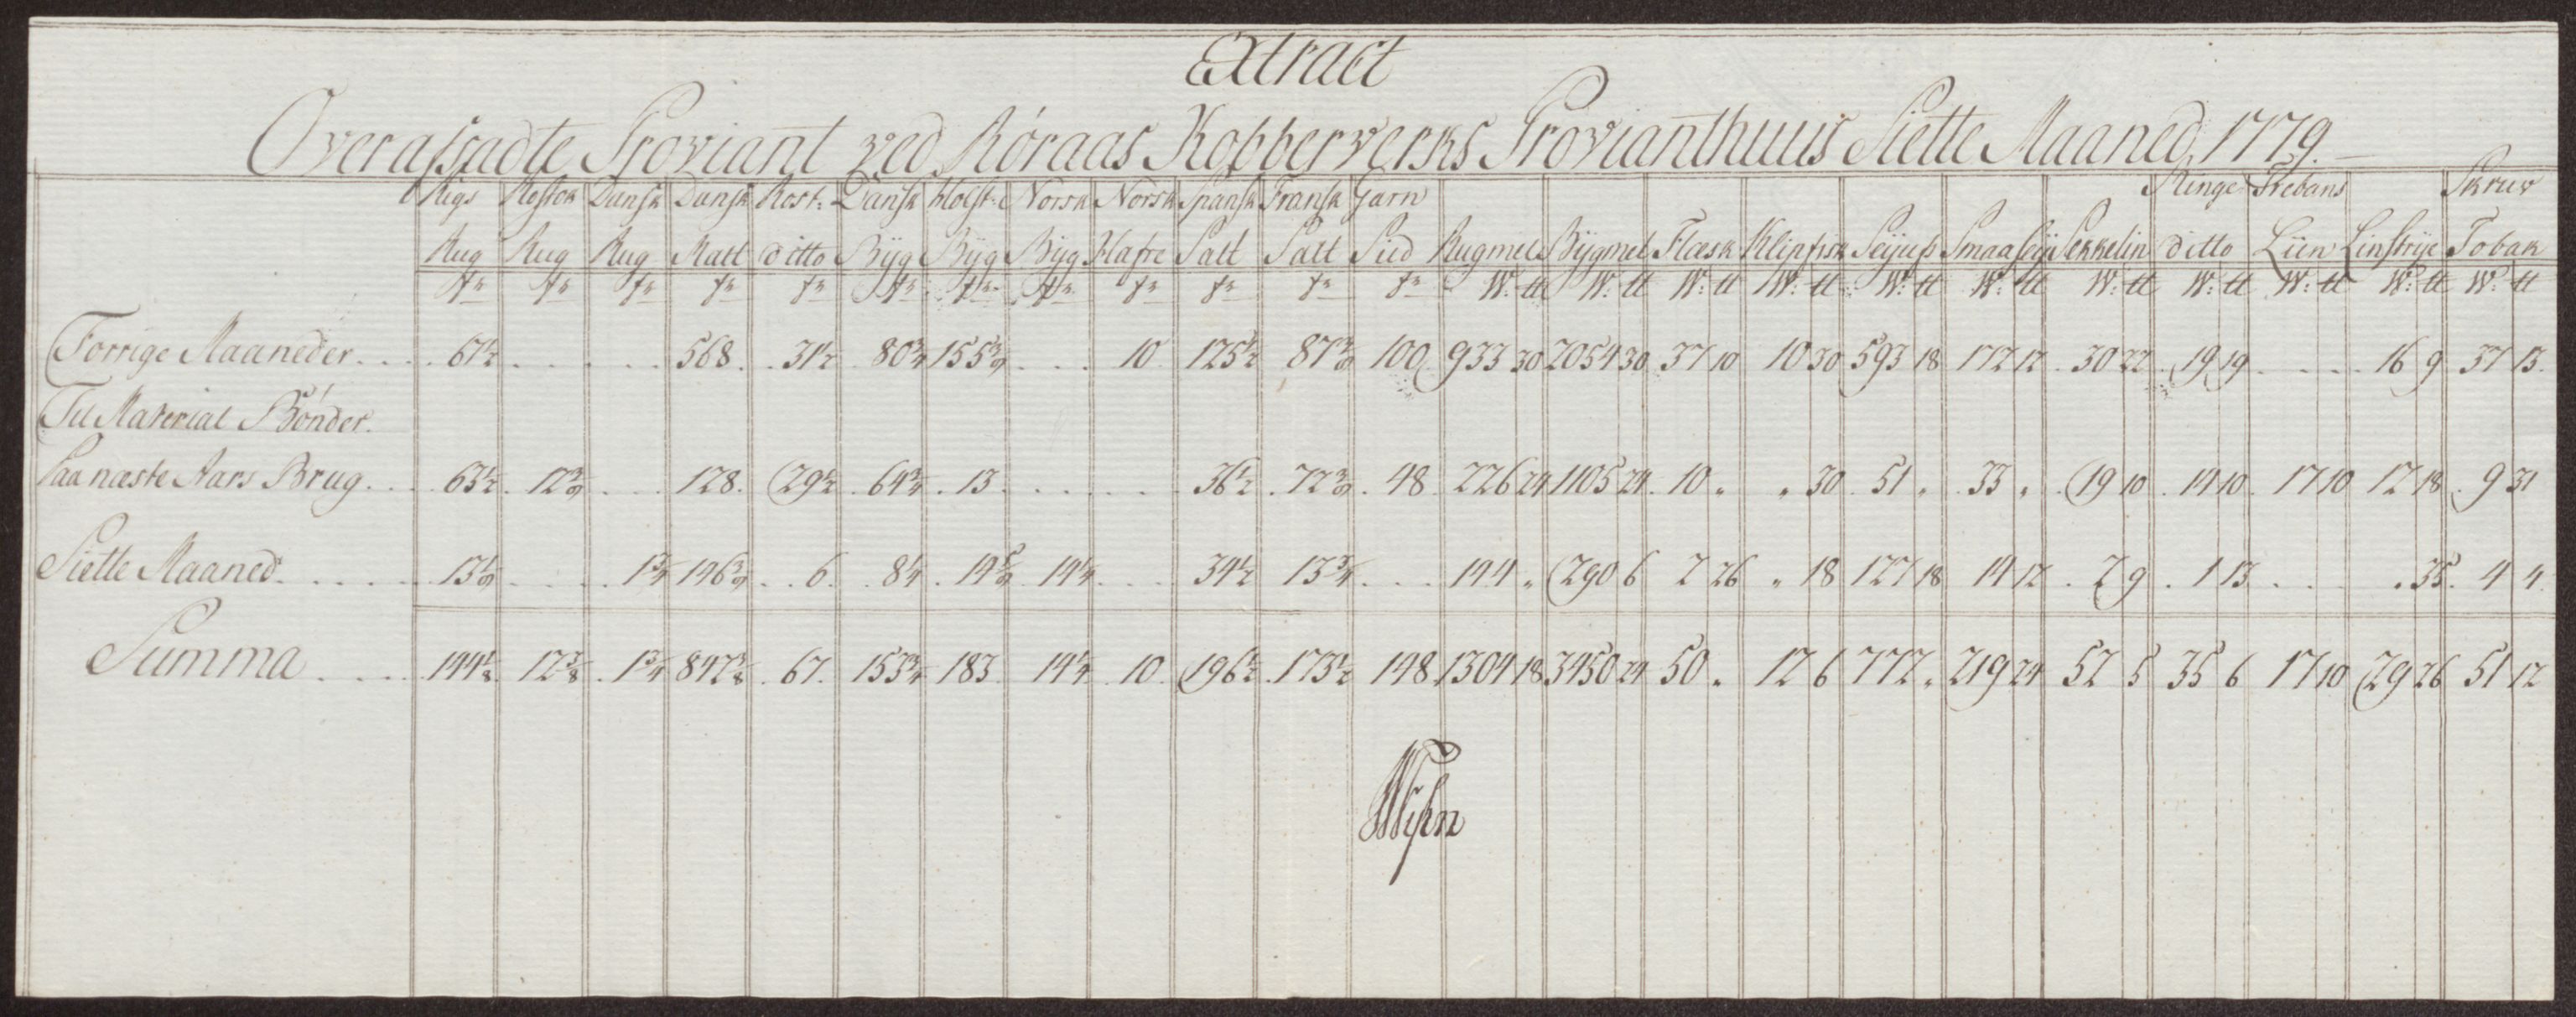 Extract
Overassadte Proviant ved Röraas Kobberverks Provianthuus Siette Maaned 1779.
Rigs Rostok Dansk Dansk Rost: Dansk Holst: Norsk Norsk Spansk Fransk Garn Ringe Trebans Skruv
Rug Rug Rug Malt ditto Byg Byg Byg Hafre Salt Salt Sild Rugmel Bygmel Flæsk Klipfisk Seyus Smaasey Sekkelin ditto Liin Linstrye Tobak
W: tt W: tt W: tt W: tt W: tt W: tt W: tt W: tt W: tt W: tt W: tt
Forrige Maaneder 67½ 568 31½ 80¾ 155⅜ 10 125½ 87⅜ 100 933 30 2054 30 37 10 10 30 593 18 172 12 30 22 19 19 16 9 37 13
Til Material Bönder
Paa næste Aars Brug 63½ 12⅜ 128 29½ 64¾ 13 36½ 72⅜ 48 226 24 1105 24 10 „ „ 30 51 „ 33 „ 19 10 14 10 17 10 12 18 9 31
Siette Maaned 13⅛ 1¾ 146⅜ 6 8¼ 14⅝ 14¼ 34½ 13¾ 144 „ 290 6 2 26 „ 18 127 18 14 12 2 9 1 13 35 4 4
Summa 144⅛ 12⅜ 1¾ 842⅜ 67 153¾ 183 14¼ 10 196½ 173½ 148 1304 18 3450 24 50 „ 12 6 772 „ 219 24 52 5 35 6 17 10 29 26 51 12